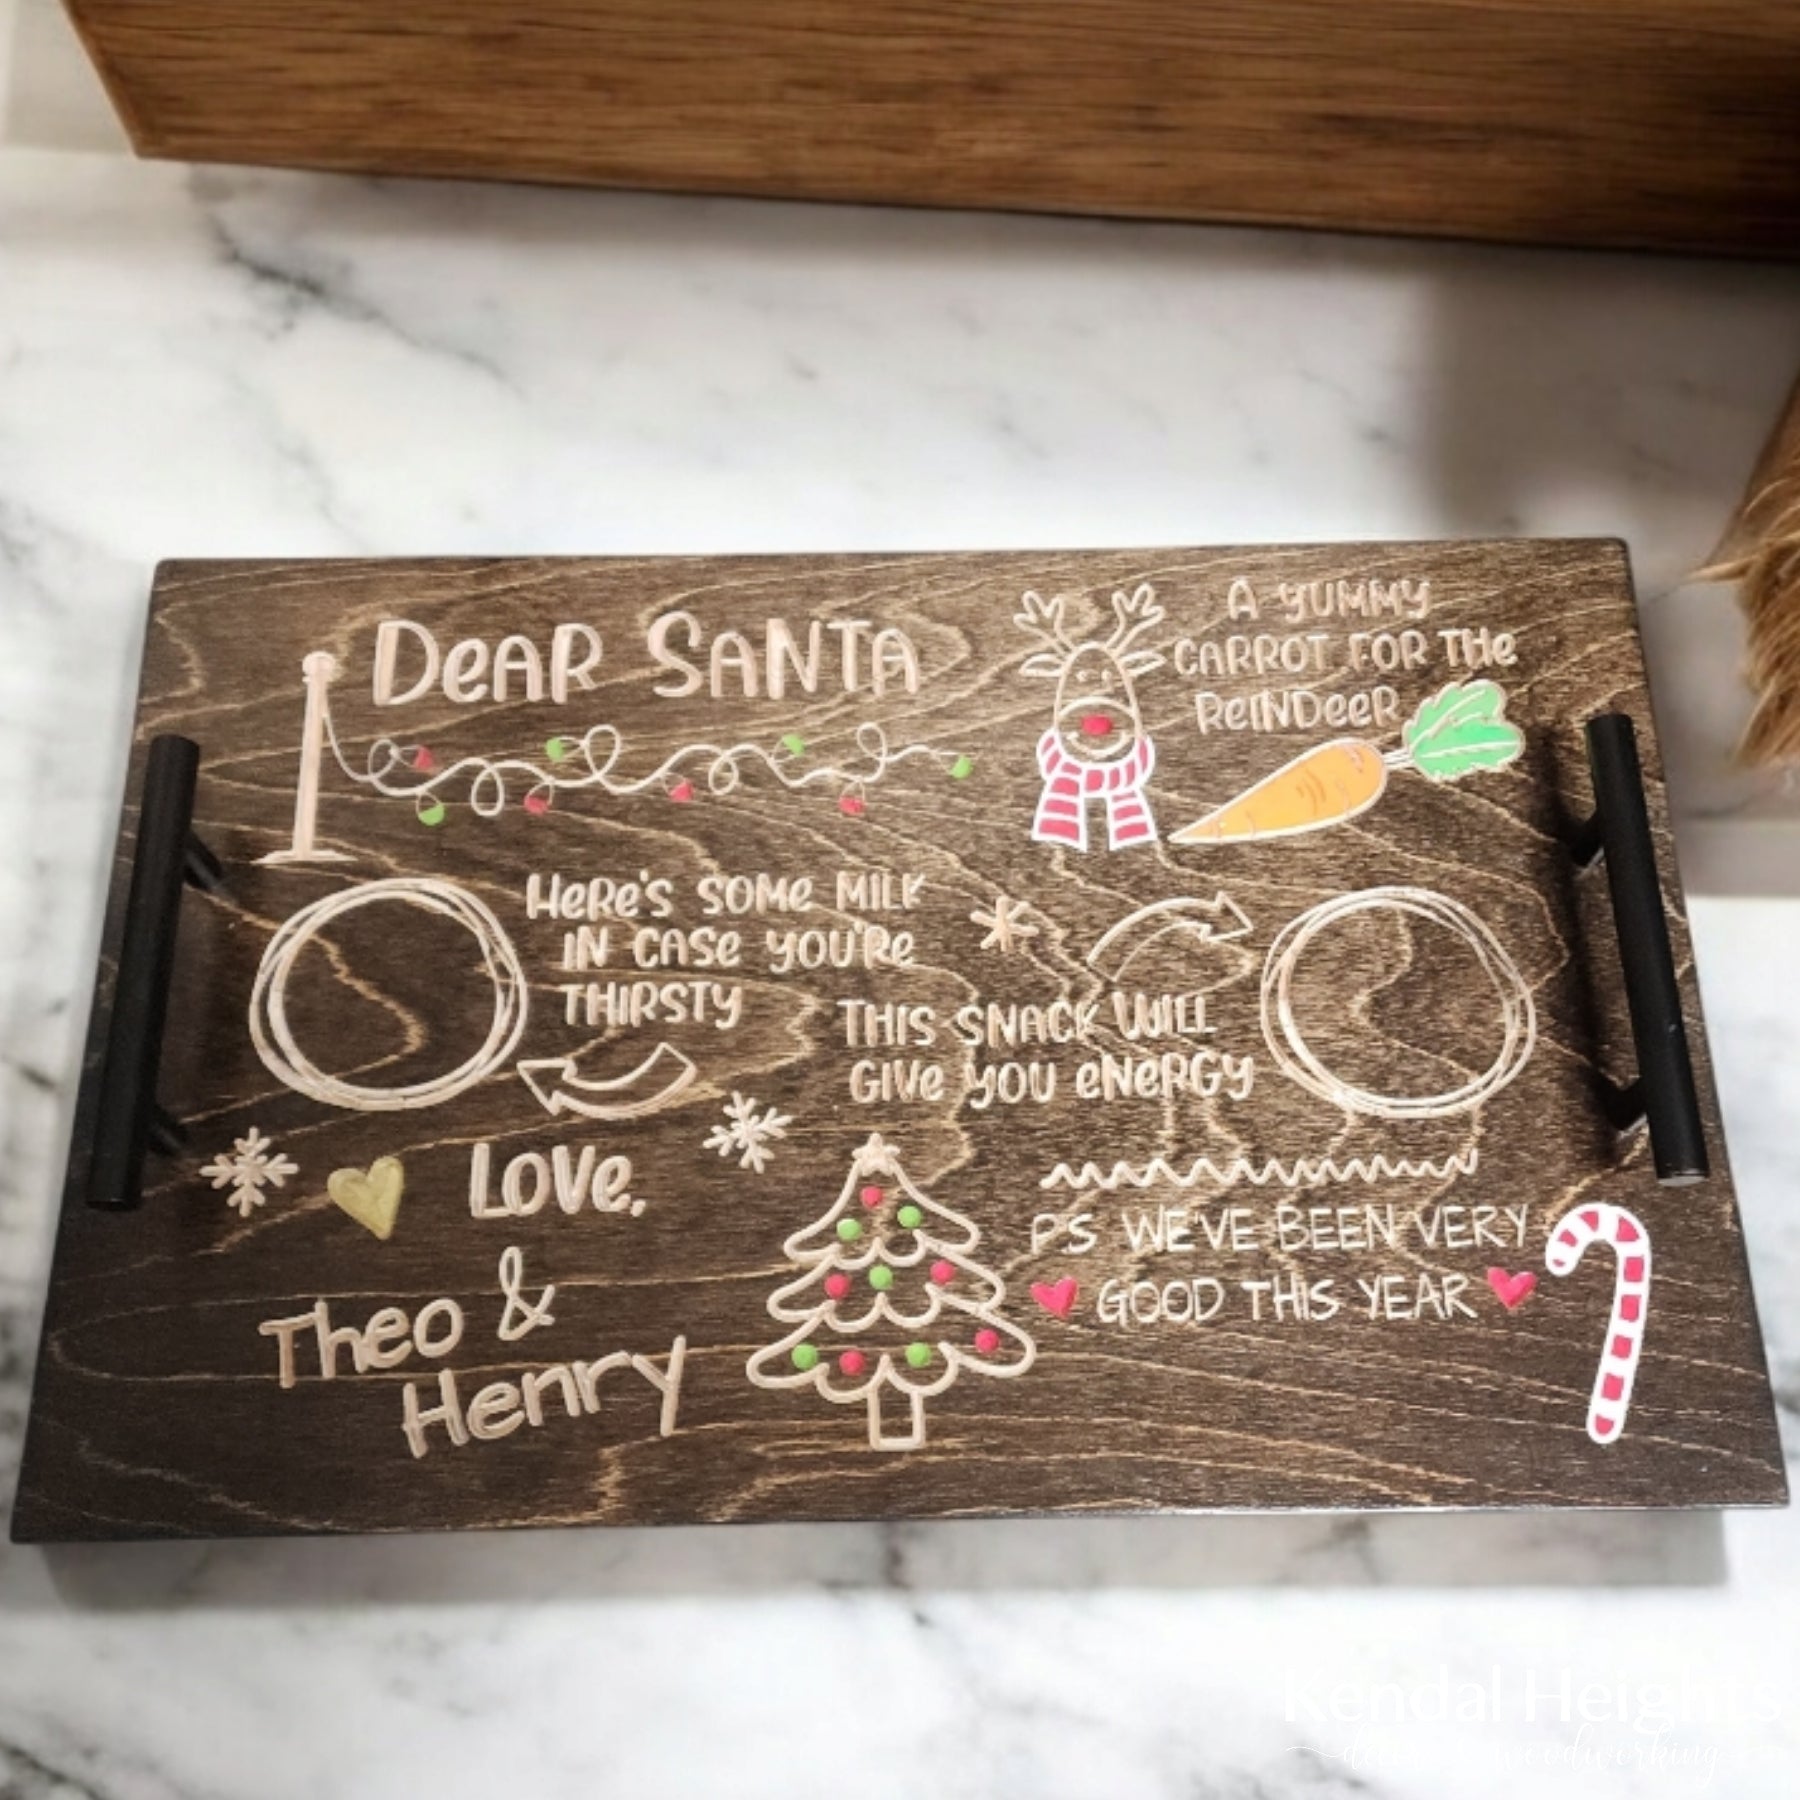 DeAR SANTA
A YUMMY
CARROT FOR THe
ReINDeeR
HeRe's SOMe MILK
IN CASe YOU'Re
THIRSTY
THIS SNACK WILL
GIVe YOU eNeRGY
LOVe,
Theo &
Henry
PS WE'VE BEEN VERY
GOOD THIS YEAR
Kendal Heights
decor & woodworking